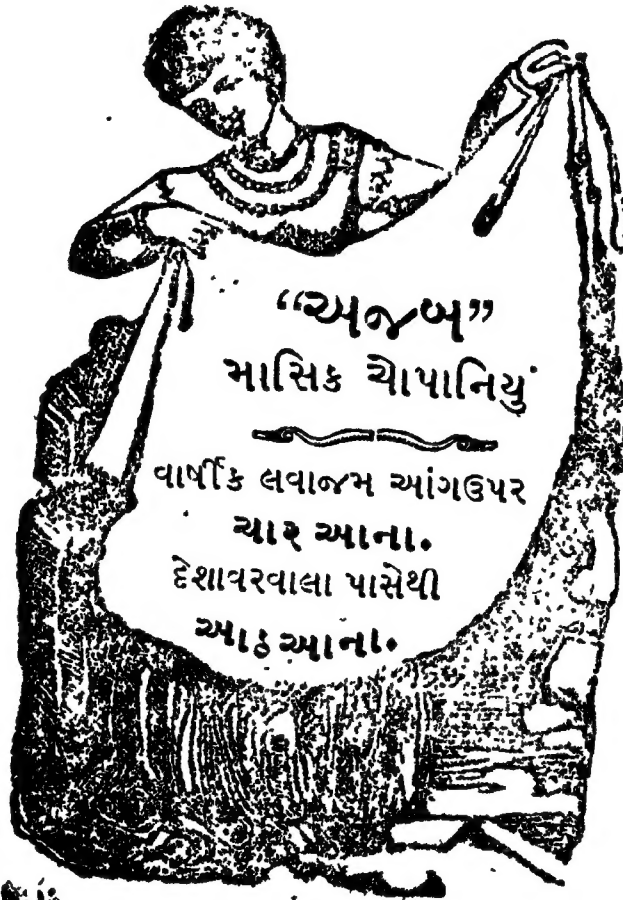 “અજબ”
માસિક ચૉપાનિયું
વાર્ષીક લવાજમ આંગઉપર
ચાર આના.
દેશાવરવાલા પાસેથી
આઠ આના.